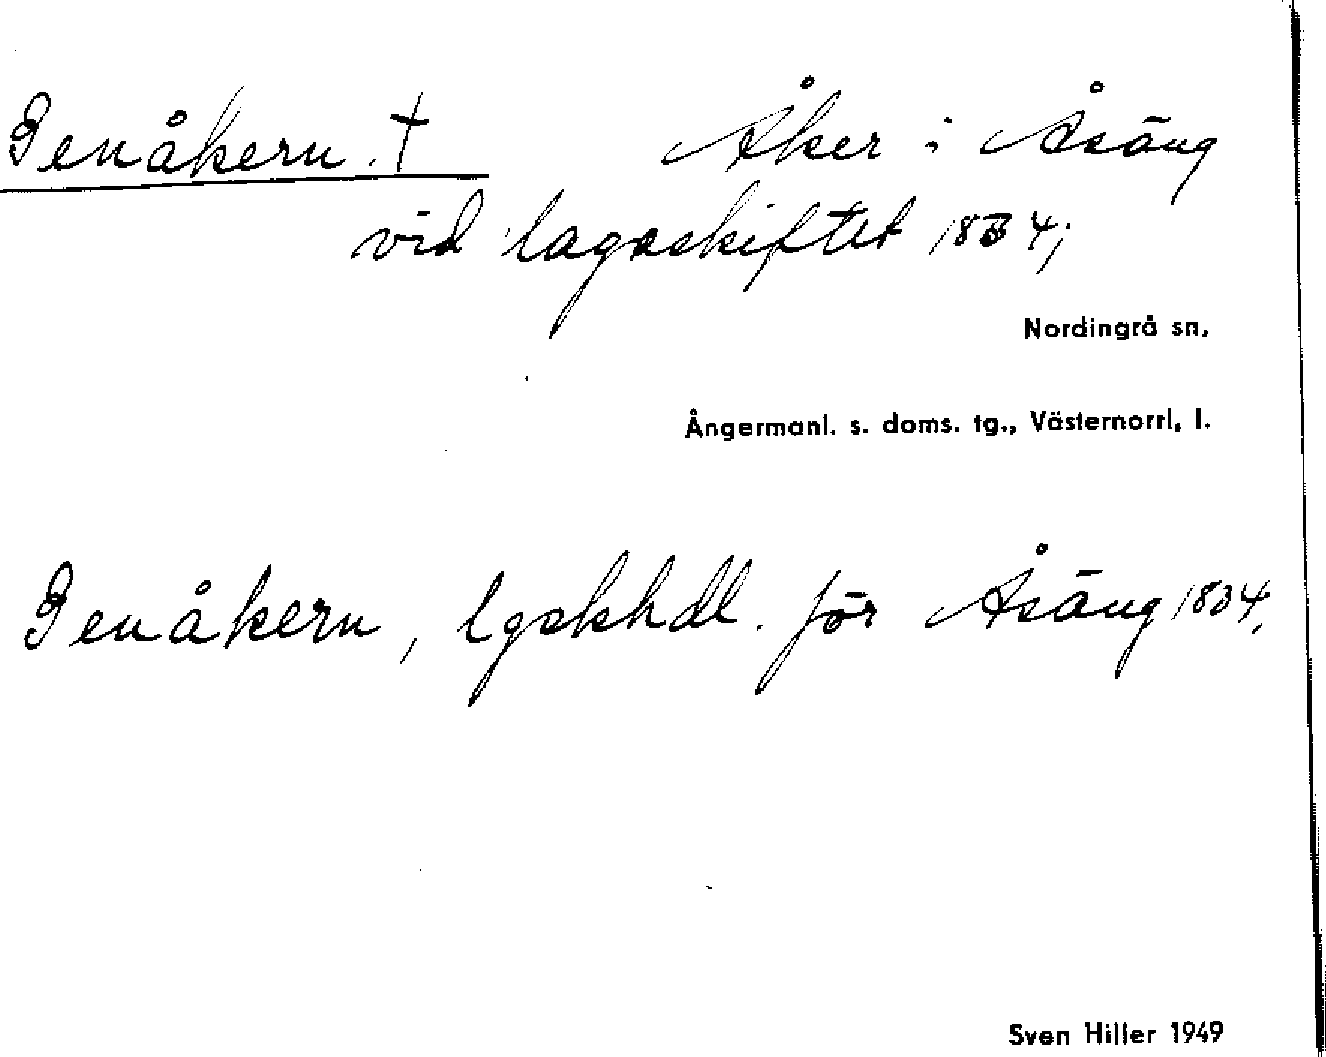 Genåkern. † Åker i Åsäng
vid lagaskiftet 1834;
Nordingrå sn.
Ångermanl. s. doms. tg., Västernorrl. l.
Genåkern, lgskhdl. för Åsäng 1834.
Sven Hiller 1949